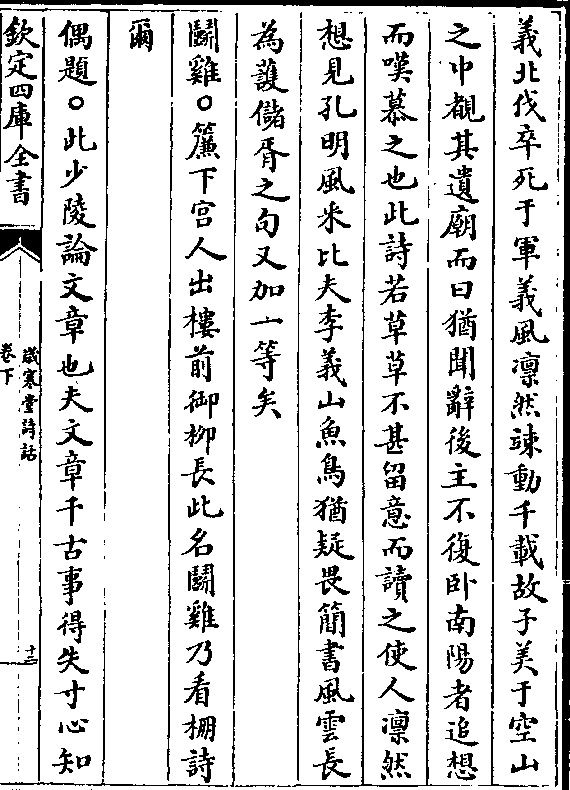 義北伐卒死于軍義風凛然竦動千載故子美于空山
之中覩其遺廟而曰猶聞辭後主不復卧南陽者追想
而嘆慕之也此詩若草草不甚留意而讀之使人凛然
想見孔明風米比夫李義山魚鳥猶疑畏簡書風雲長
為護儲胥之句又加一等矣
鬭雞○簾下宫人出樓前御栁長此名鬭雞乃看棚詩
爾
偶題○此少陵論文章也夫文章千古事得失寸心知
欽定四庫全書
歲寒堂詩話
卷下
十二